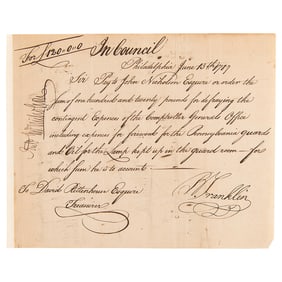 For £120..0..0 In Council
Philadelphia June 15th 1787
Sir Pay to John Nicholson Esquire or order the
Sum of one hundred and twenty pounds for defraying the
contingent Expences of the Comptroller Generals Office
including expence for firewood for the Pennsylvania guards
and Oil for the Lamp kept up in the guard room — for
which sum he is to account —
B Franklin
To David Rittenhouse Esquire
Treasurer